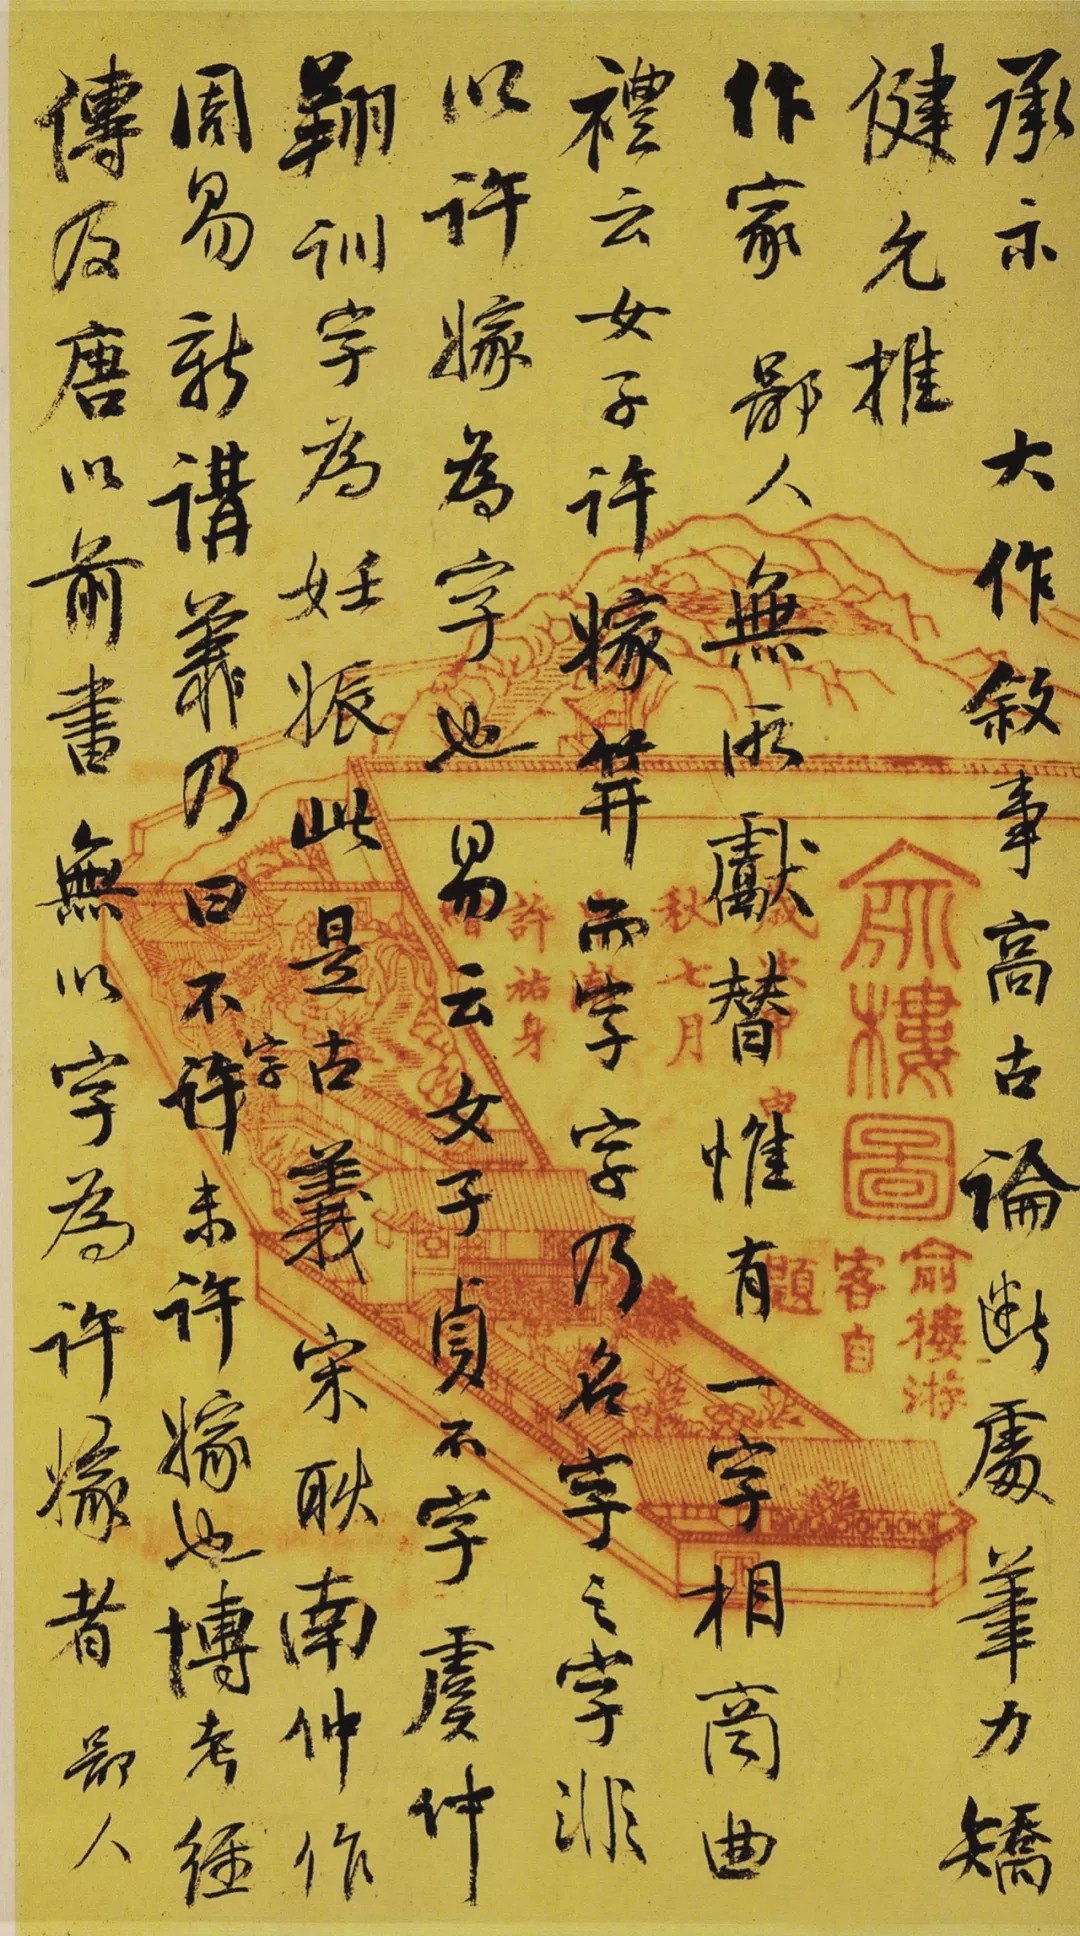 承示 大作敘事高古論斷處筆力矯
健允推
作家鄙人無所獻替惟有一字相商曲
禮云女子許嫁笄而字字乃名字之字非
以許嫁為字也易云女子貞不字虞仲
翔訓字為妊娠此是古義宋耿南仲作
周易新講義乃曰不許字未許嫁也博考經
傳及唐以前書無以字為許嫁者鄙人
俞樓圖
俞樓游
客自
題
秋七月
許祐身